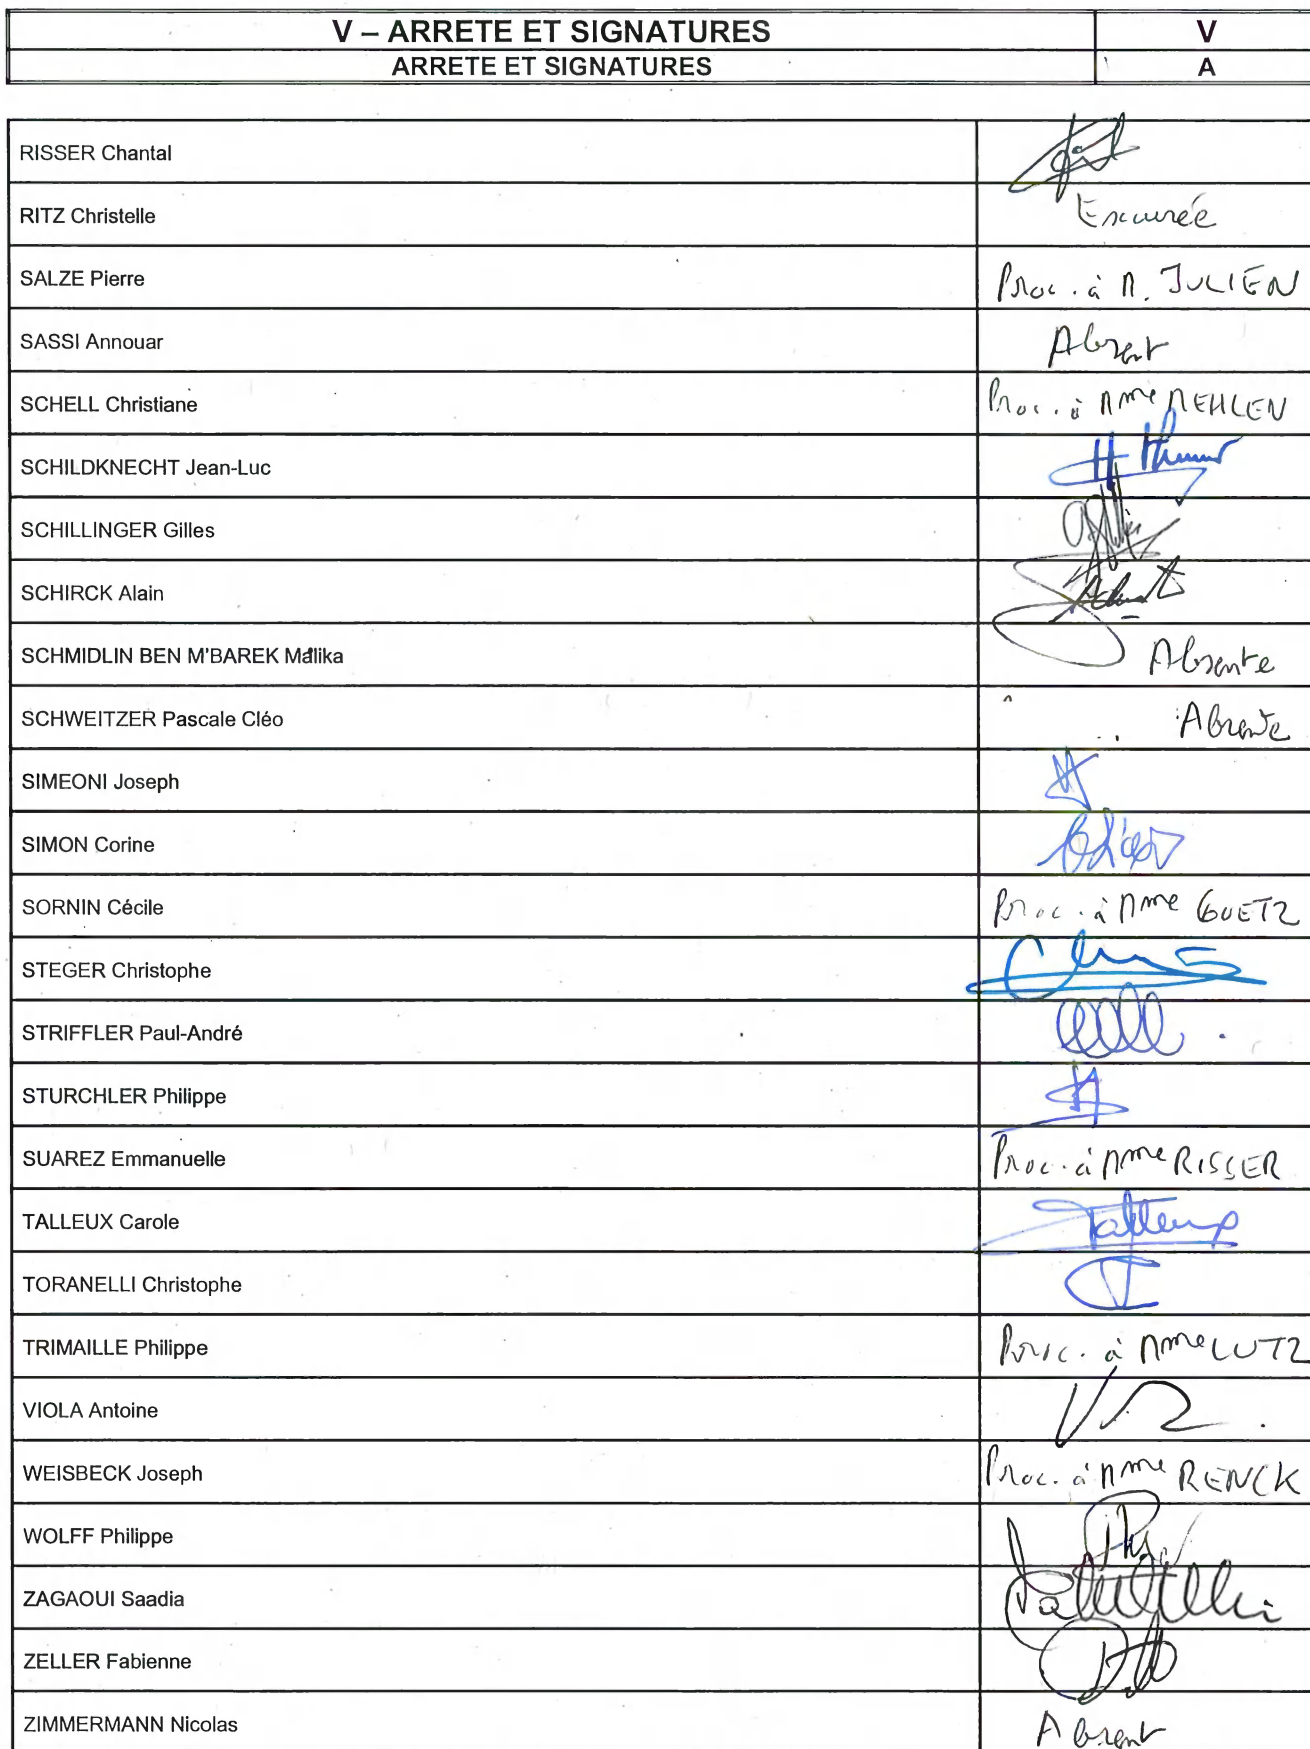 V – ARRETE ET SIGNATURES V
ARRETE ET SIGNATURES A
RISSER Chantal
RITZ Christelle Excusée
SALZE Pierre Proc. à M. JULIEN
SASSI Annouar Absent
SCHELL Christiane Proc. à Mme MEHLEN
SCHILDKNECHT Jean-Luc
SCHILLINGER Gilles
SCHIRCK Alain
SCHMIDLIN BEN M'BAREK Malika Absente
SCHWEITZER Pascale Cléo Absente
SIMEONI Joseph
SIMON Corine
SORNIN Cécile Proc. à Mme GOETZ
STEGER Christophe
STRIFFLER Paul-André
STURCHLER Philippe
SUAREZ Emmanuelle Proc. à Mme RISSER
TALLEUX Carole Talleux
TORANELLI Christophe
TRIMAILLE Philippe Proc. à Mme LUTZ
VIOLA Antoine
WEISBECK Joseph Proc. à Mme RENCK
WOLFF Philippe
ZAGAOUI Saadia
ZELLER Fabienne
ZIMMERMANN Nicolas Absent